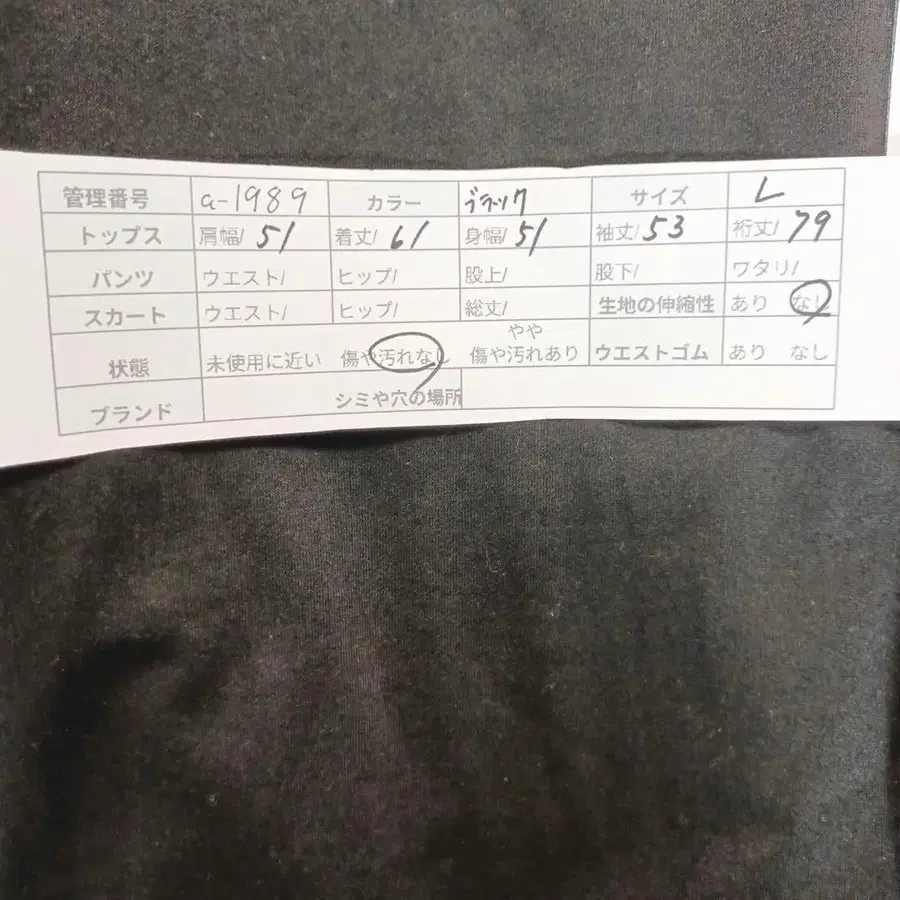 管理番号 a-1989 カラー ブラック サイズ L
トップス 肩幅/ 51 着丈/ 61 身幅/ 51 袖丈/ 53 裄丈/ 79
パンツ ウエスト/ ヒップ/ 股上/ 股下/ ワタリ/
スカート ウエスト/ ヒップ/ 総丈/ 生地の伸縮性 あり なし
状態 未使用に近い 傷や汚れなし やや傷や汚れあり ウエストゴム あり なし
ブランド シミや穴の場所